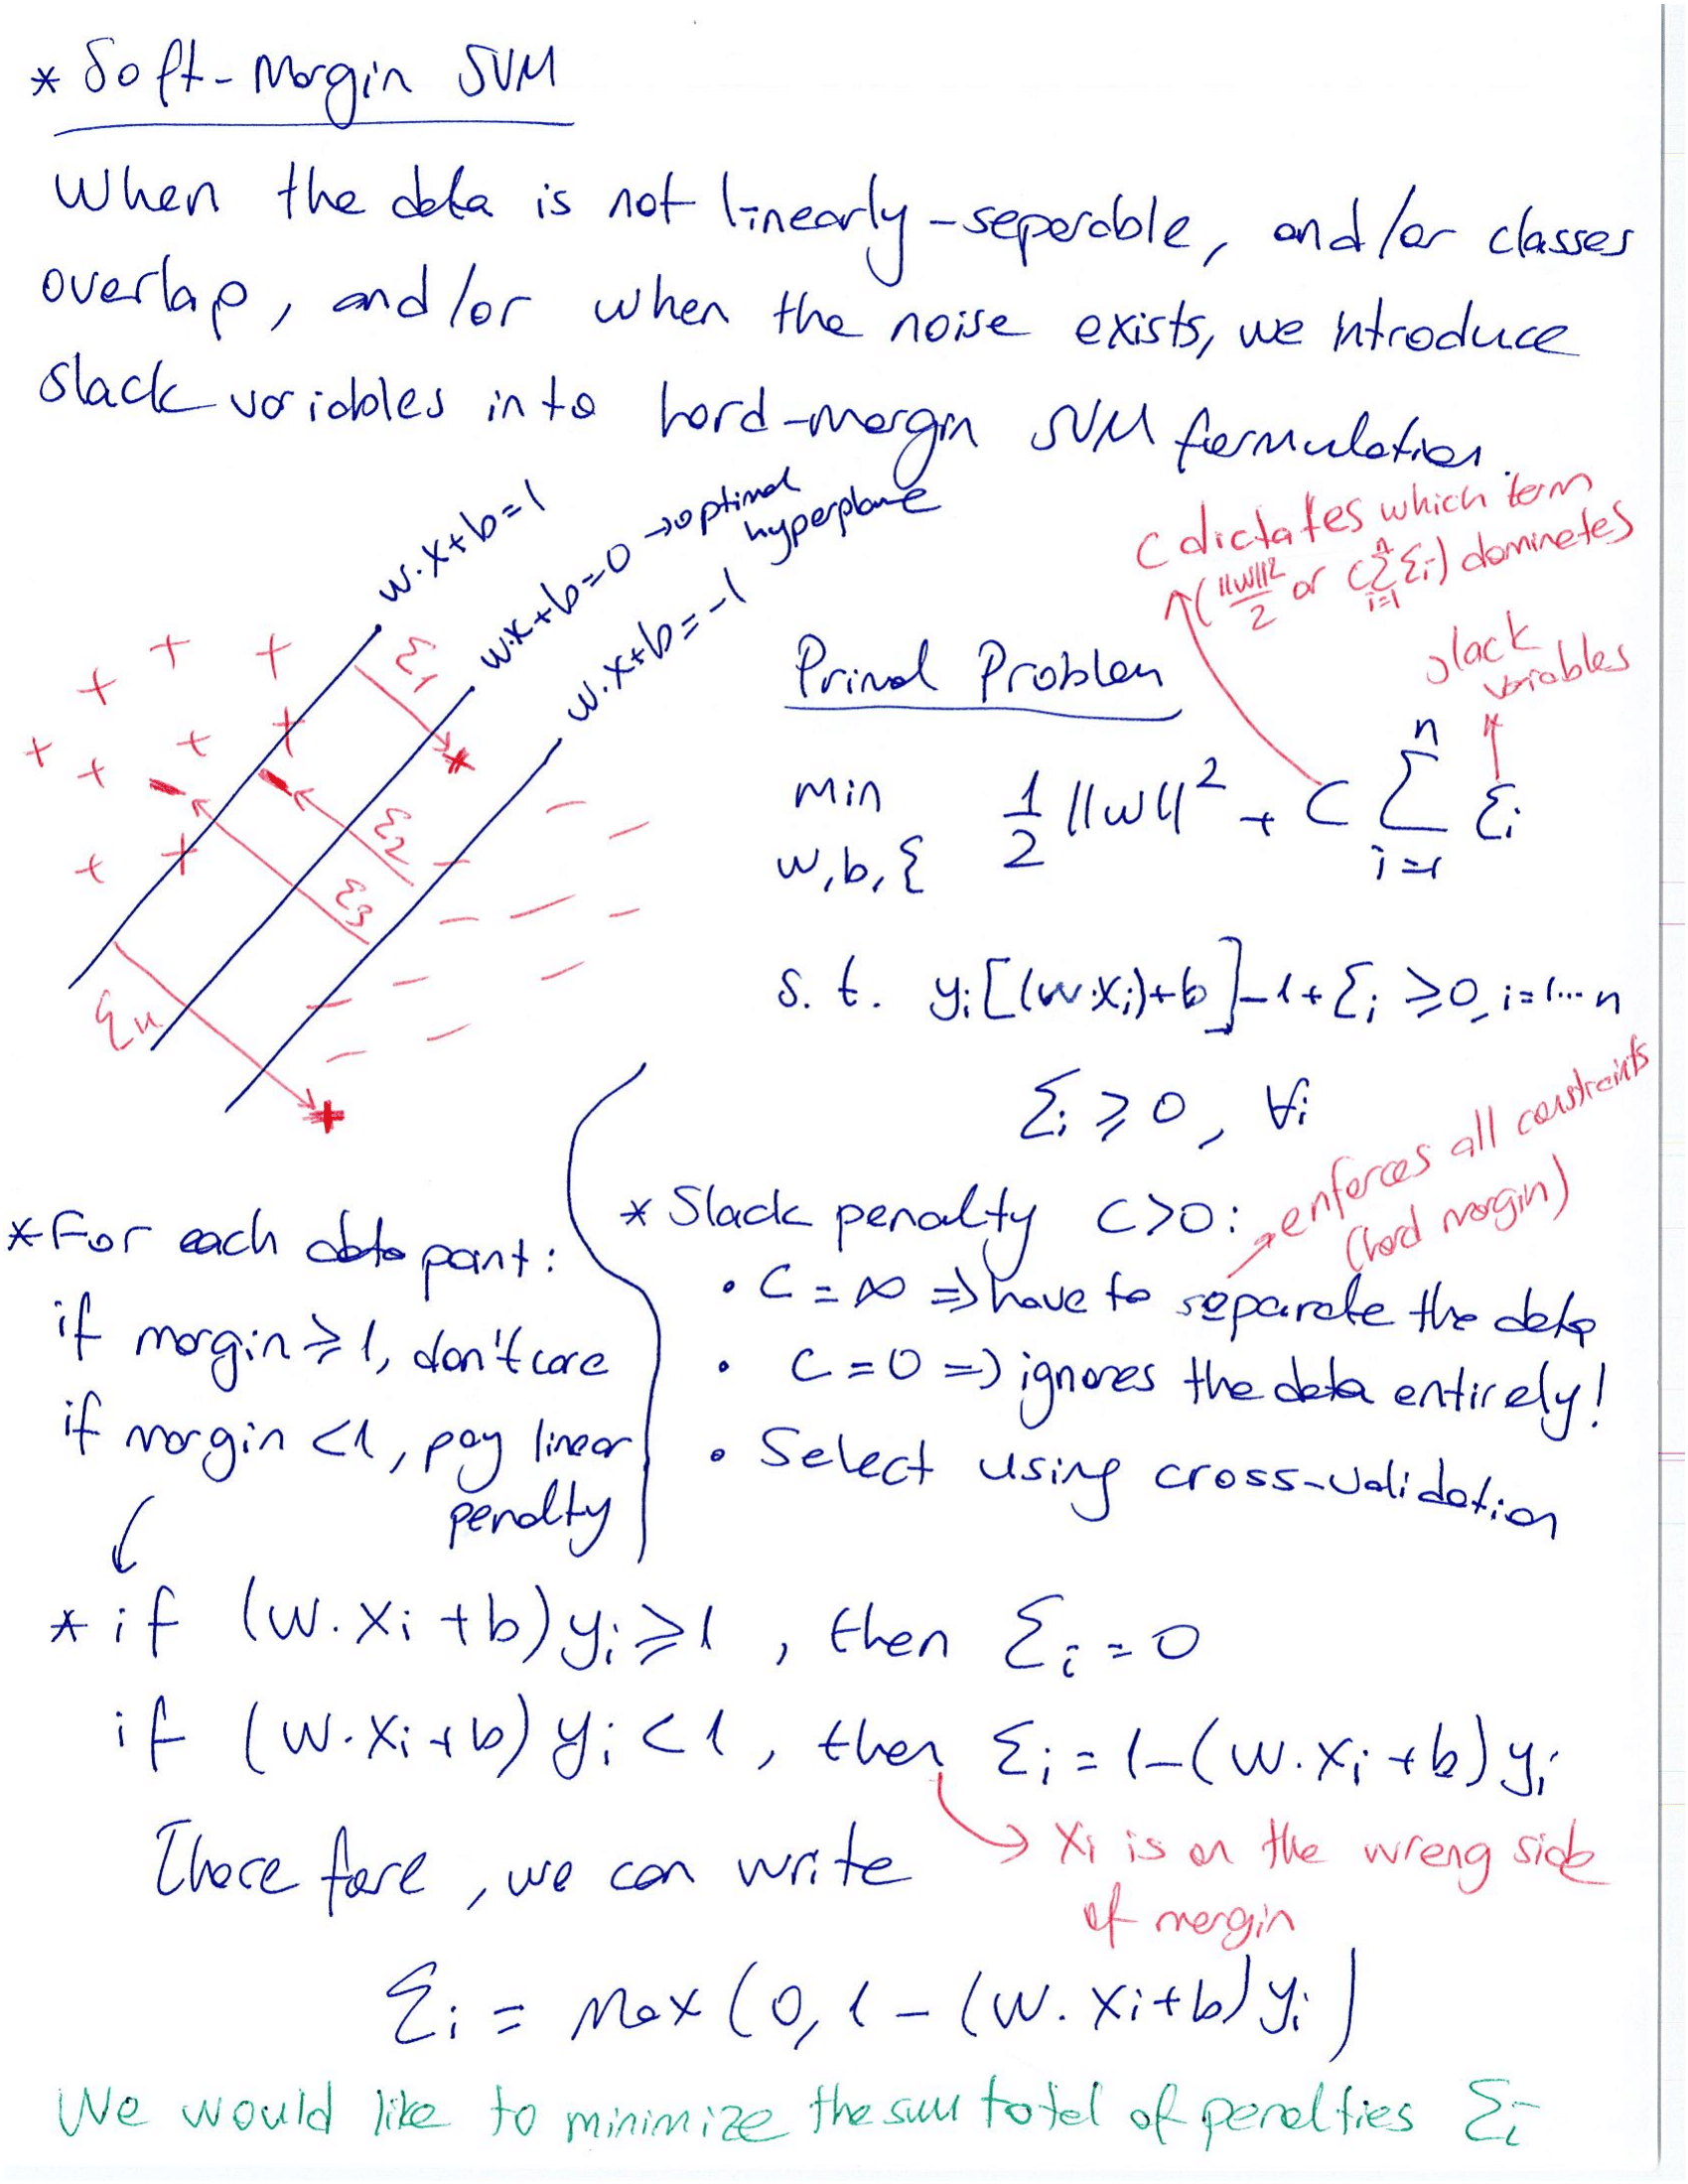 * Soft-Margin SVM
When the data is not linearly-seperable, and/or classes
overlap, and/or when the noise exists, we introduce
slack variables into hard-margin SVM formulation.
w.x+b=1
w.x+b=0 → optimal
hyperplane
w.x+b=-1
C dictates which term
(||w||²/2 or C∑ξi) dominates
i=1
n
slack
variables
ξ1
ξ2
ξ3
ξ4
Primal Problem
min 1/2 ||w||² + C ∑ ξi
w,b,ξ
n
i=1
s.t. yi[(w.xi)+b]-1+ξi ≥0, i=1...n
ξi ≥ 0, ∀i
* For each data point:
if margin ≥ 1, don't care
if margin <1, pay linear
penalty
* Slack penalty C>0:
→ enforces all constraints
(hard margin)
• C = ∞ ⇒ have to separate the data
• C = 0 ⇒ ignores the data entirely!
• Select using cross-validation
* if (w.xi+b)yi ≥ 1, then ξi = 0
if (w.xi+b)yi < 1, then ξi = 1-(w.xi+b)yi
→ xi is on the wrong side
of margin
Therefore, we can write
ξi = max(0, 1-(w.xi+b)yi)
We would like to minimize the sum total of penalties ξi